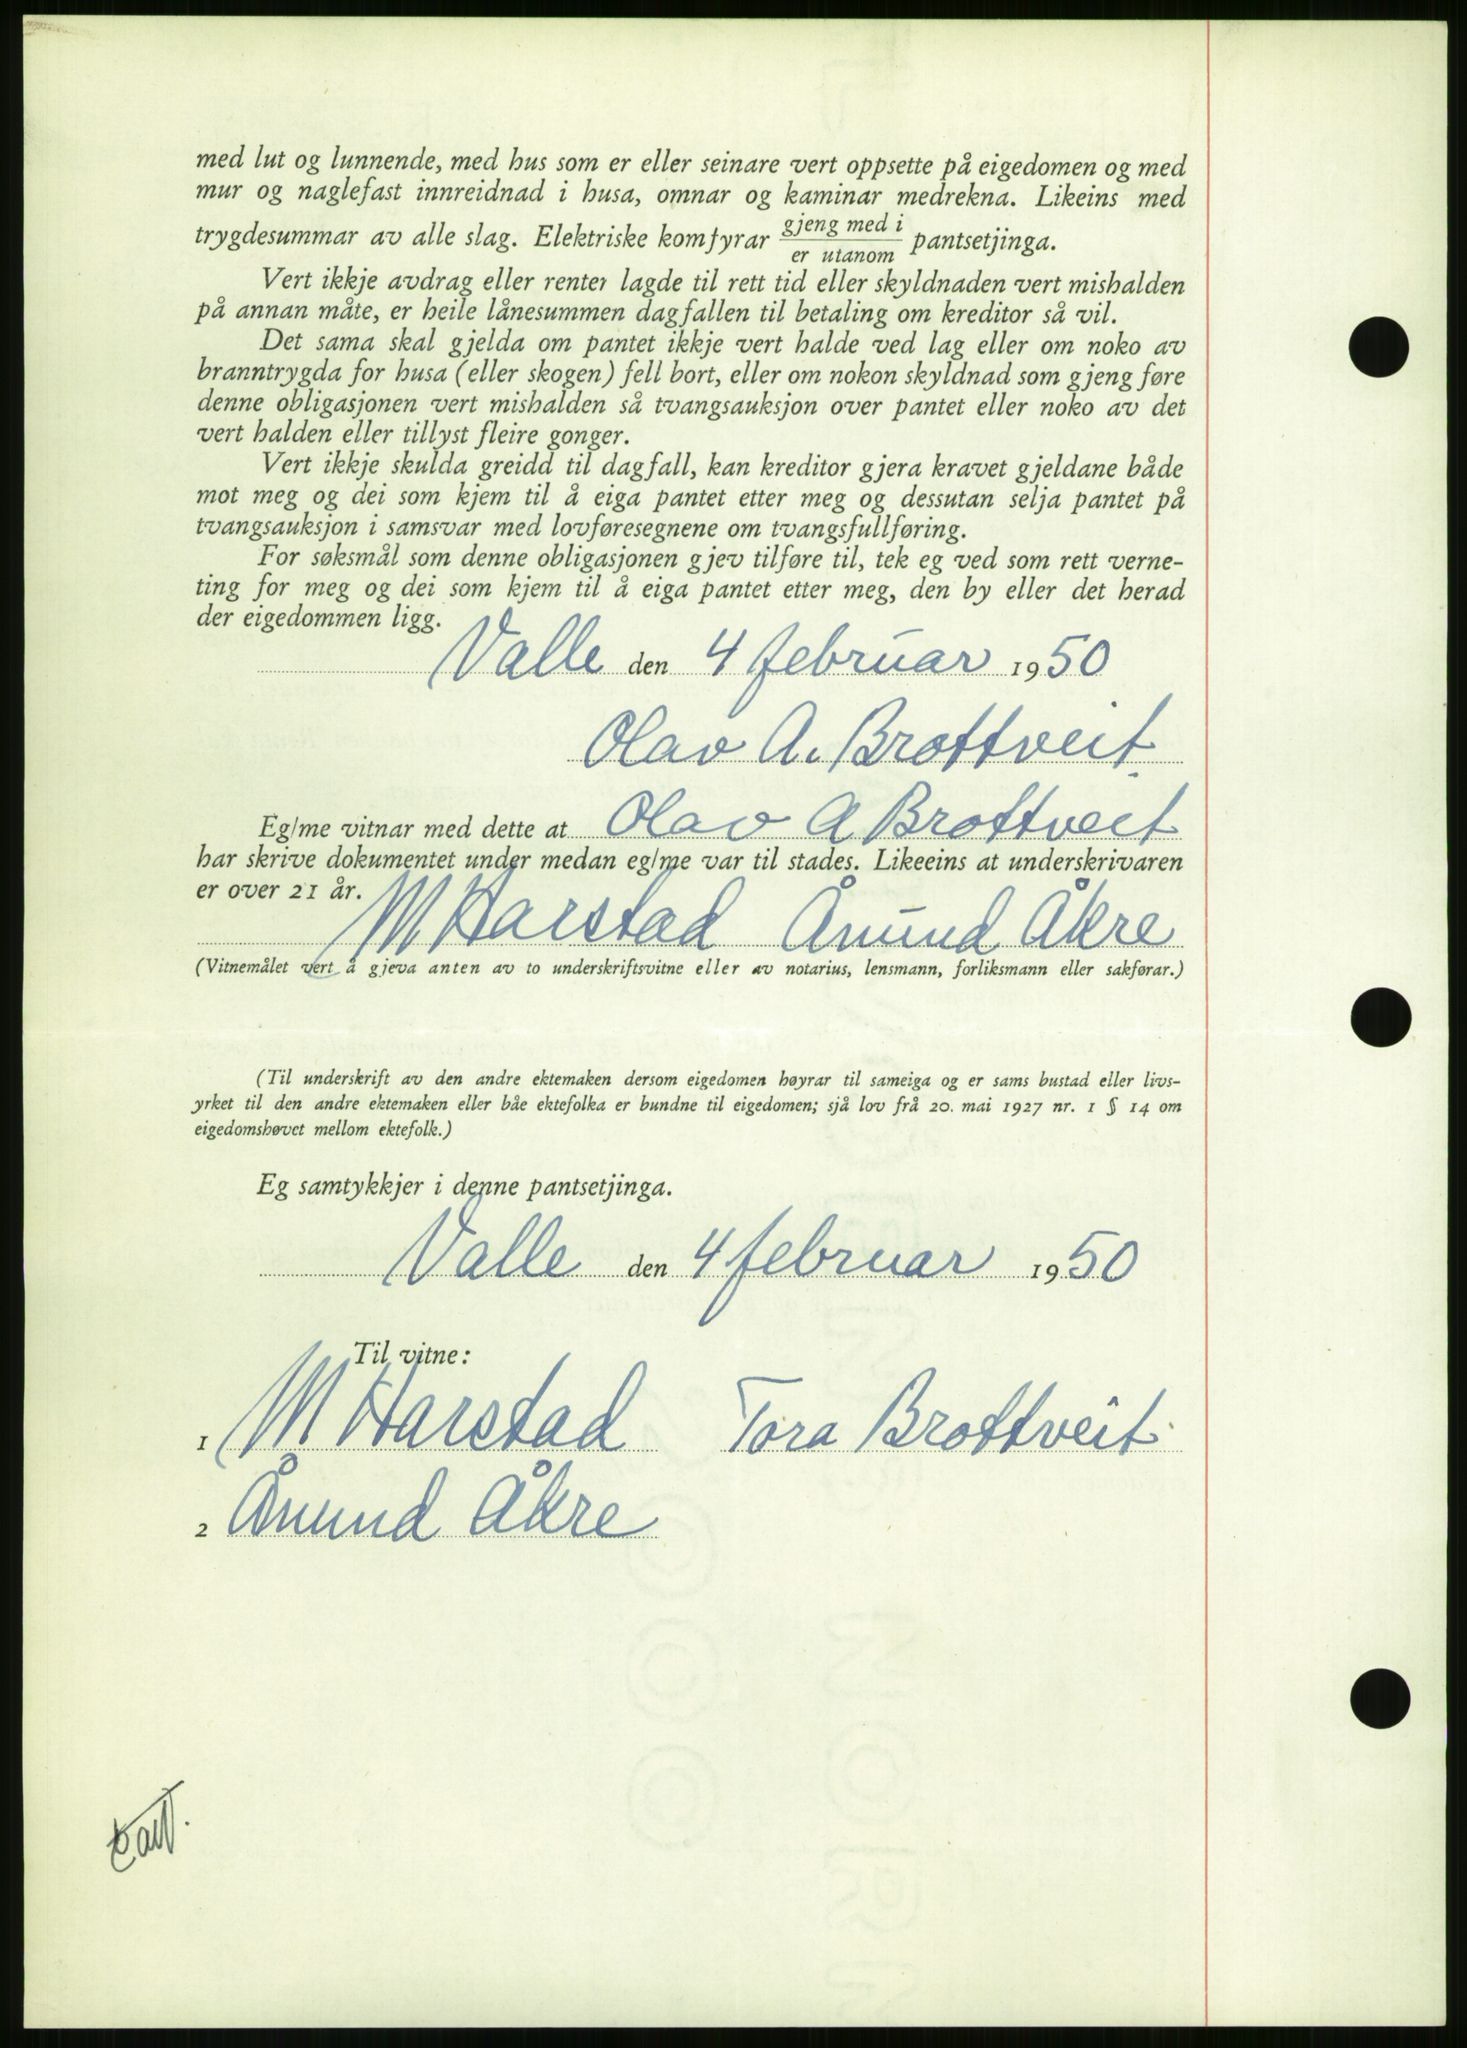 med lut og lunnende, med hus som er eller seinare vert oppsette på eigedomen og med
mur og naglefast innreidnad i husa, omnar og kaminar medrekna. Likeins med
trygdesummar av alle slag. Elektriske komfyrar gjeng med i / er utanom pantsetjinga.
Vert ikkje avdrag eller renter lagde til rett tid eller skyldnaden vert mishalden
på annan måte, er heile lånesummen dagfallen til betaling om kreditor så vil.
Det sama skal gjelda om pantet ikkje vert halde ved lag eller om noko av
branntrygda for husa (eller skogen) fell bort, eller om nokon skyldnad som gjeng føre
denne obligasjonen vert mishalden så tvangsauksjon over pantet eller noko av det
vert halden eller tillyst fleire gonger.
Vert ikkje skulda greidd til dagfall, kan kreditor gjera kravet gjeldane både
mot meg og dei som kjem til å eiga pantet etter meg og dessutan selja pantet på
tvangsauksjon i samsvar med lovføresegnene om tvangsfullføring.
For søksmål som denne obligasjonen gjev tilføre til, tek eg ved som rett verne-
ting for meg og dei som kjem til å eiga pantet etter meg, den by eller det herad
der eigedommen ligg.
Valle den 4 februar 1950
Olav A. Brottveit
Eg/me vitnar med dette at Olav A Brottveit
har skrive dokumentet under medan eg/me var til stades. Likeeins at underskrivaren
er over 21 år.
M Harstad Ånund Åkre
(Vitnemålet vert å gjeva anten av to underskriftsvitne eller av notarius, lensmann, forliksmann eller sakførar.)
(Til underskrift av den andre ektemaken dersom eigedomen høyrar til sameiga og er sams bustad eller livs-
yrket til den andre ektemaken eller båe ektefolka er bundne til eigedomen; sjå lov frå 20. mai 1927 nr. 1 § 14 om
eigedomshøvet mellom ektefolk.)
Eg samtykkjer i denne pantsetjinga.
Valle den 4 februar 1950
Til vitne:
1 M Harstad Tora Brottveit
2 Ånund Åkre